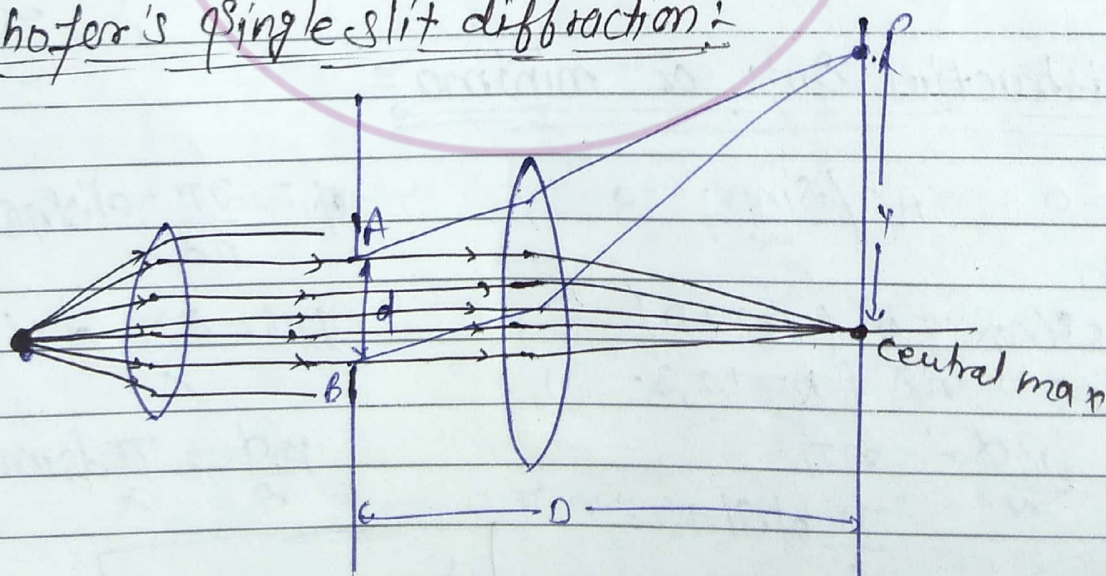 hofer's single slit diffraction:-
P
A
y
d
B
Central max
D